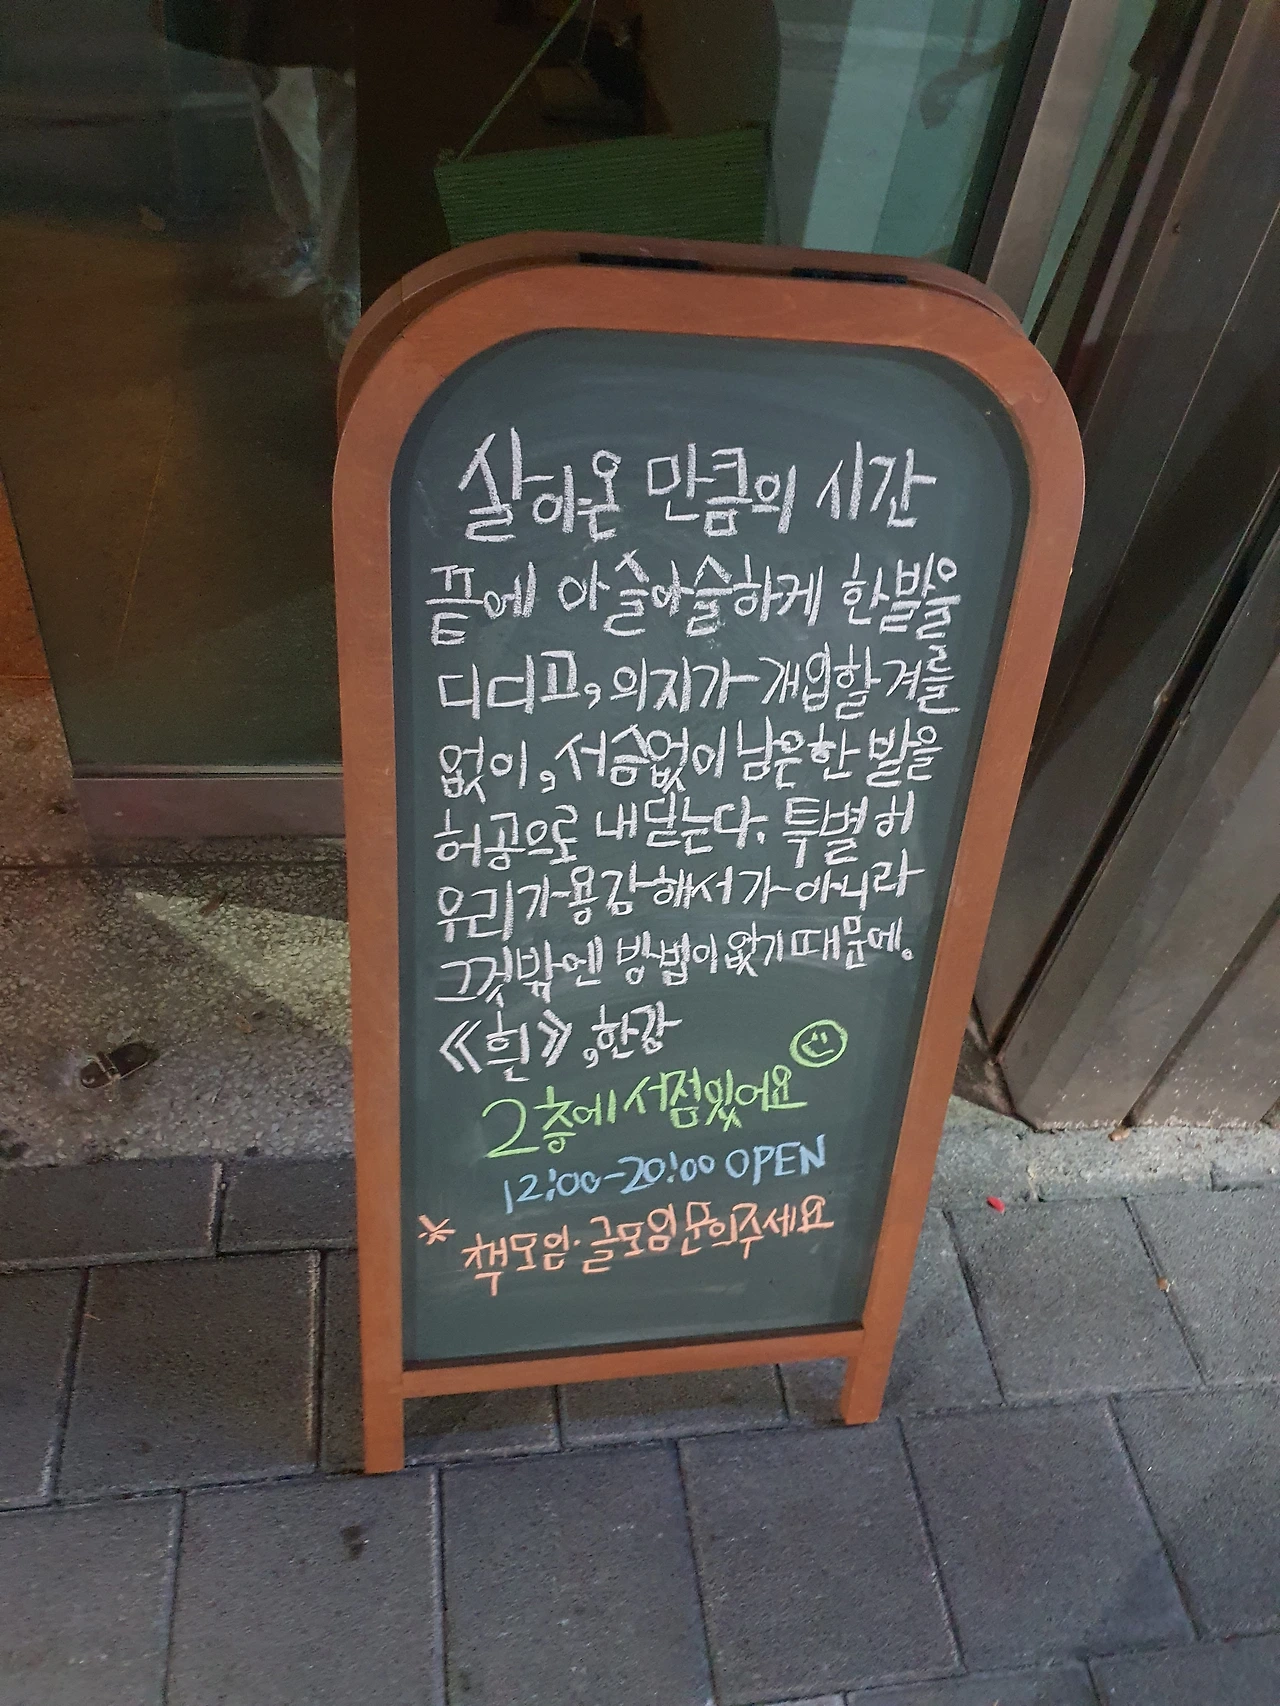 살아온 만큼의 시간
끝에 아슬아슬하게 한발을
디디고, 의지가 개입할 겨를
없이, 서슴없이 남은 한 발을
허공으로 내딛는다. 특별히
우리가 용감해서가 아니라
그것밖엔 방법이 없기 때문에.
《흰》, 한강
2층에 서점있어요
12:00-20:00 OPEN
* 책모임·글모임 문의주세요